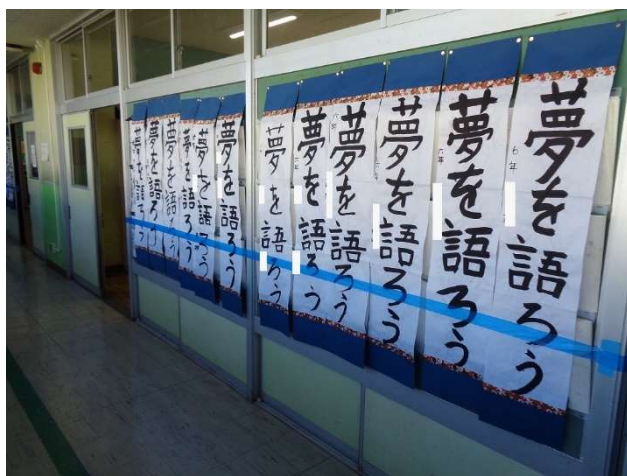 夢を語ろう
6年
夢を語ろう
六年
夢を語ろう
六年
夢を語ろう
六年
夢を語ろう
六年
夢を語ろう
夢を語ろう
夢を語ろう
夢を語ろう
夢を語ろう
夢を語ろう
夢を語ろう